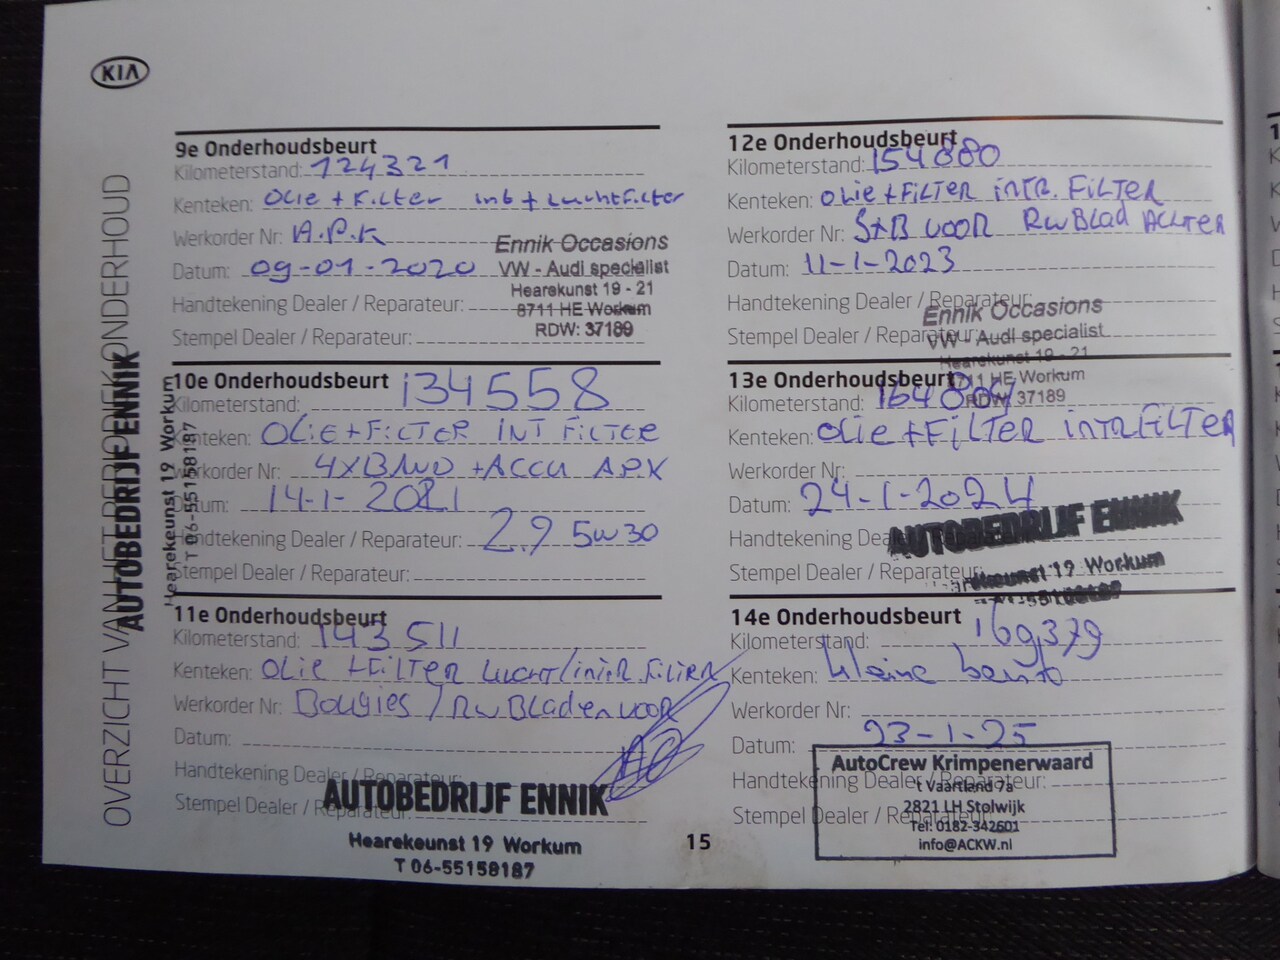 KIA
OVERZICHT VAN HET PERIODIEK ONDERHOUD
AUTOBEDRIJF ENNIK
Hearekeunst 19 Workum
T 06-55158187
9e Onderhoudsbeurt
Kilometerstand: 124321
Kenteken: OLie + Filter int + Luchtfilter
Werkorder Nr: A.P.K
Datum: 09-01-2020
Handtekening Dealer / Reparateur:
Stempel Dealer / Reparateur:
Ennik Occasions
VW - Audi specialist
Hearekunst 19 - 21
8711 HE Workum
RDW: 37189
10e Onderhoudsbeurt
Kilometerstand: 134558
Kenteken: OLiE + FiLTER INT FiLTER
Werkorder Nr: 4XBAND + ACCU APK
Datum: 14-1-2021
Handtekening Dealer / Reparateur: 2.9 5W30
Stempel Dealer / Reparateur:
11e Onderhoudsbeurt
Kilometerstand: 143511
Kenteken: OLiE + FiLTER LUCHT/inTR. FiLTER
Werkorder Nr: Bougies / RWBLaden VOOR
Datum:
Handtekening Dealer / Reparateur:
Stempel Dealer / Reparateur:
AUTOBEDRIJF ENNIK
Hearekeunst 19 Workum
T 06-55158187
12e Onderhoudsbeurt
Kilometerstand: 154880
Kenteken: OLiE + FiLTER inTR. FiLTER
Werkorder Nr: VOOR RWBLad ACHTER
Datum: 11-1-2023
Handtekening Dealer / Reparateur:
Stempel Dealer / Reparateur:
Ennik Occasions
VW - Audi specialist
Hearekunst 19 - 21
8711 HE Workum
RDW: 37189
13e Onderhoudsbeurt
Kilometerstand:
Kenteken: OLiE + FiLTER inTR FiLTER
Werkorder Nr:
Datum: 24-1-2024
Handtekening Dea
Stempel Dealer / Reparateur:
AUTOBEDRIJF ENNIK
Hearekeunst 19 Workum
14e Onderhoudsbeurt
Kilometerstand: 169379
Kenteken: kleine beurt
Werkorder Nr:
Datum: 23-1-25
Handtekening Dealer / Reparateur:
Stempel Dealer / Reparateur:
AutoCrew Krimpenerwaard
't Vaartland 7a
2821 LH Stolwijk
Tel: 0182-342601
info@ACKW.nl
15